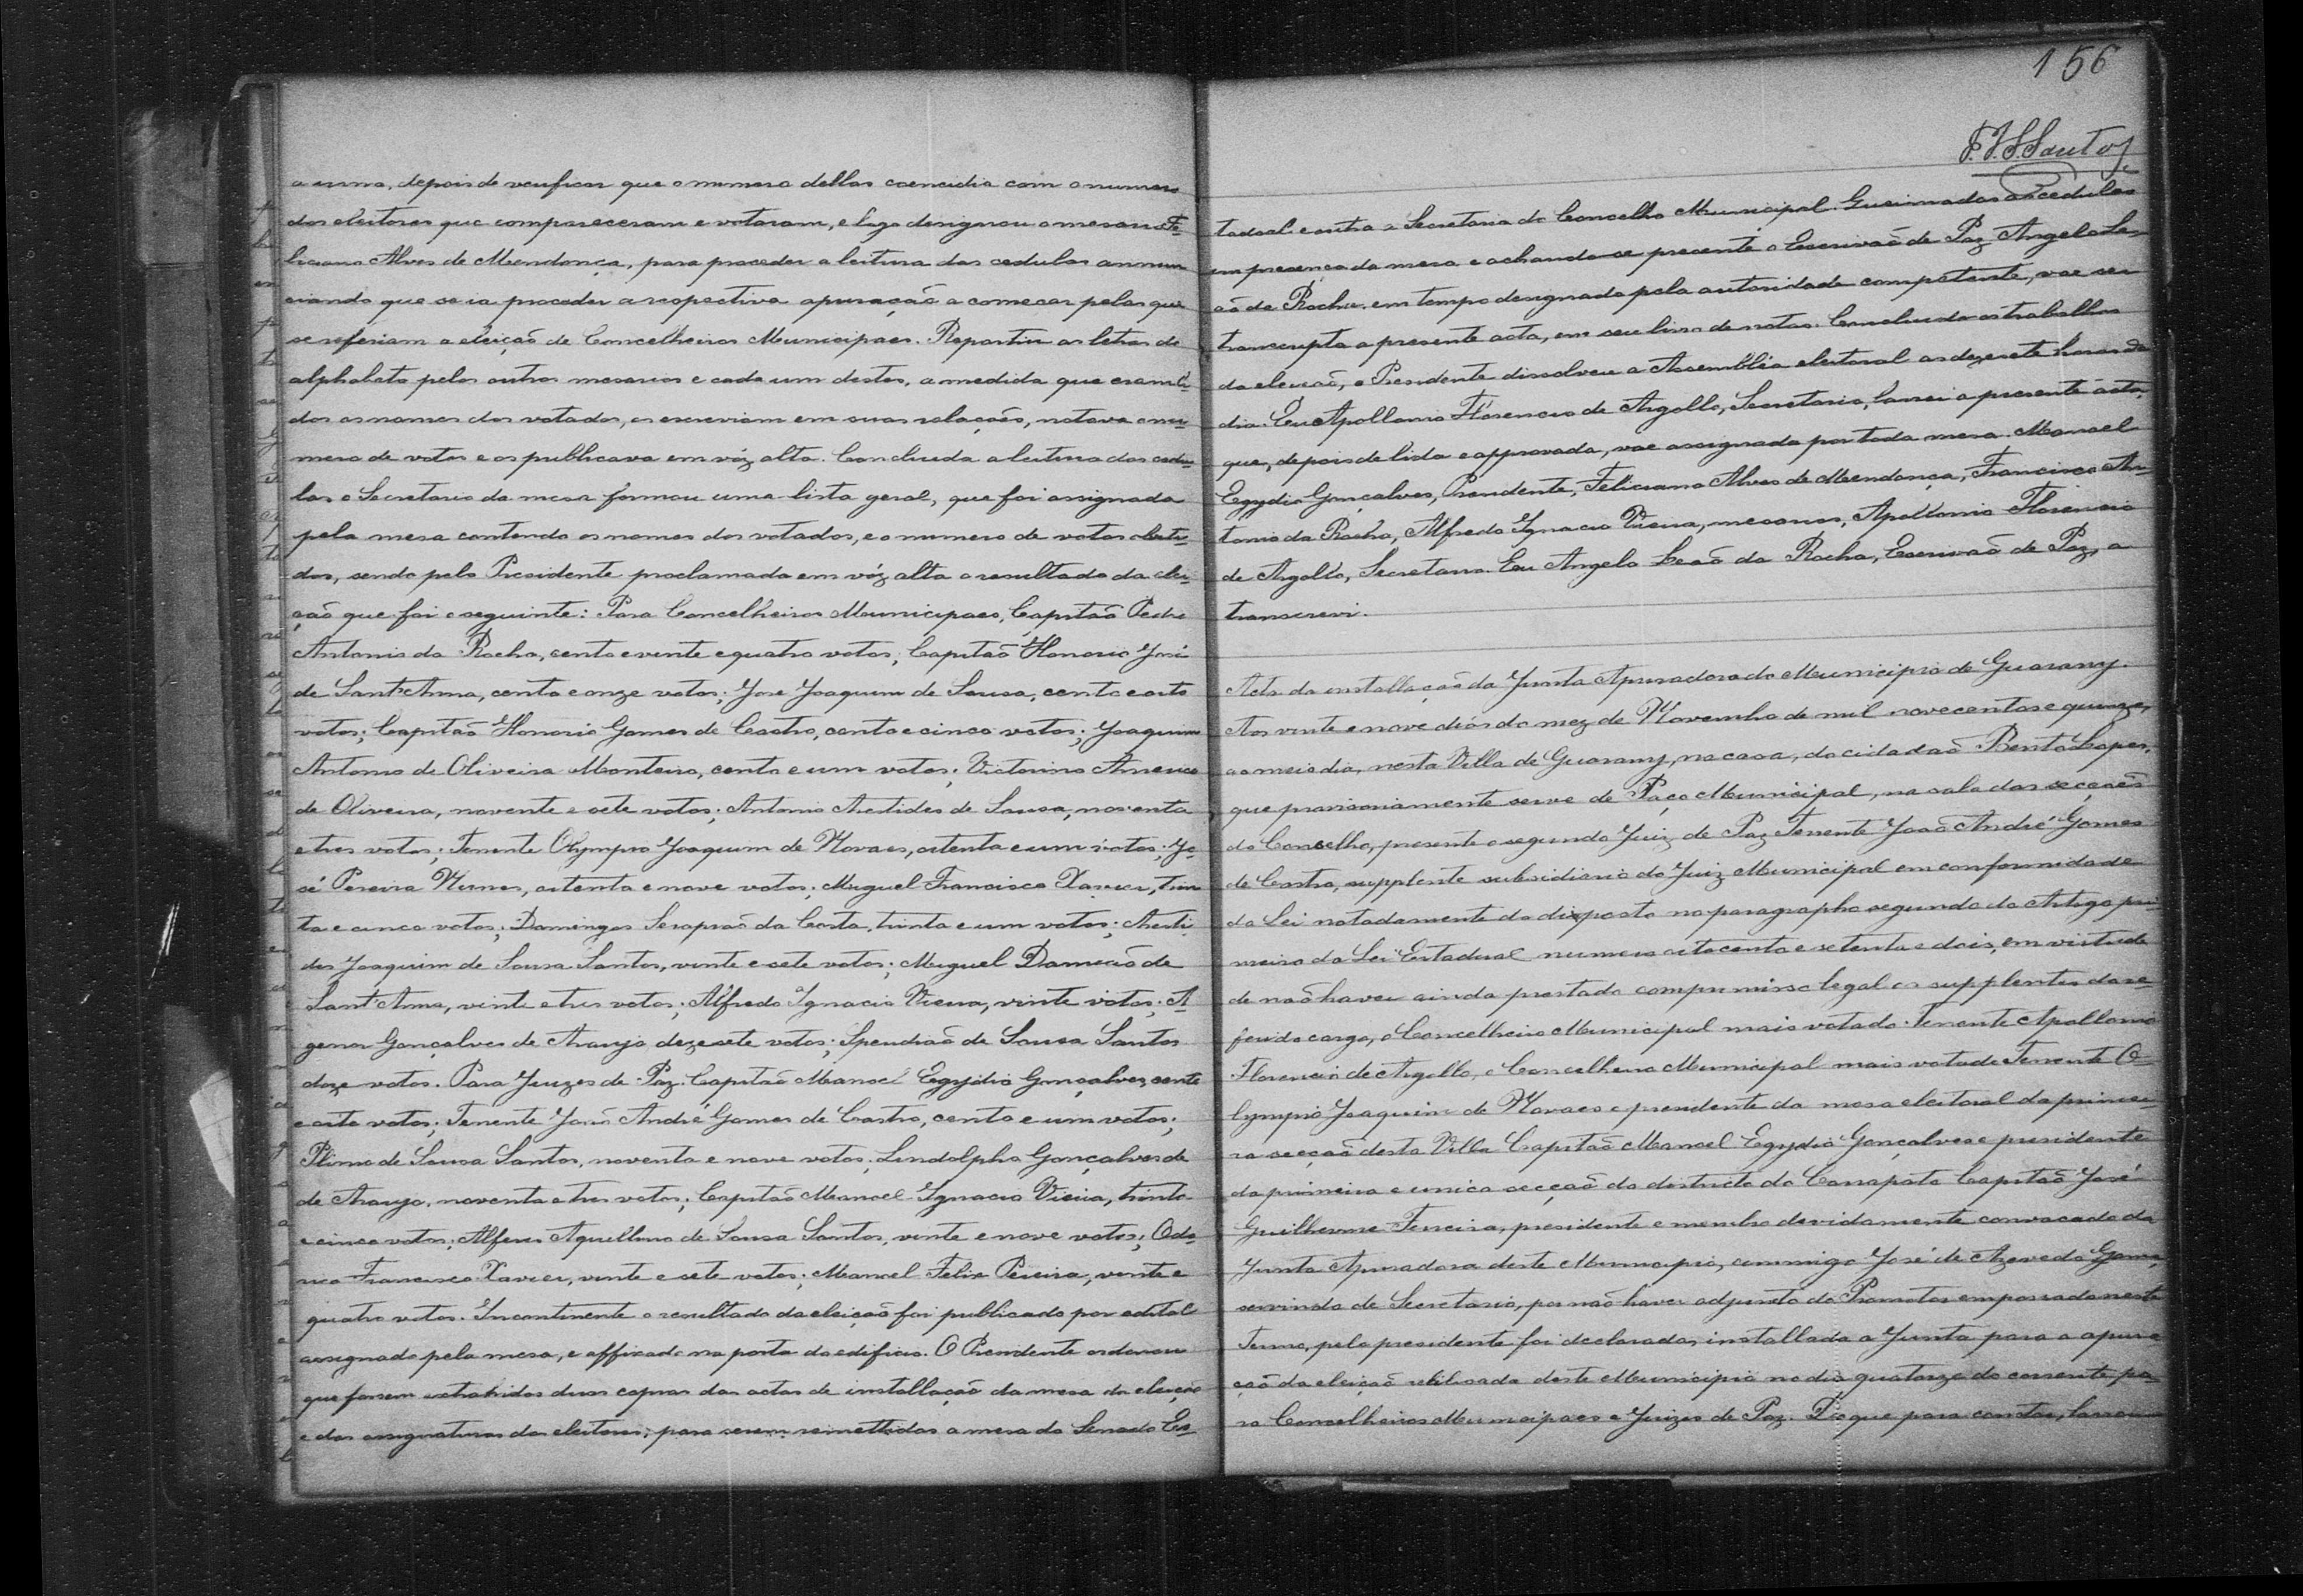 a urna, depois de verificar que o numero dellas coencidia com o numero
dos eleitores que compareceram e votaram, e logo designou o mesario Fe-
liciano Alves de Mendonça, para proceder a leitura das cedulas annun
ciando que se ia proceder a respectiva apuração a comecar pelas que
se referiam a eleição de Concelheiros Municipaes. Repartiu as letras do
alphabeto pelos outros mesarios e cada um destes, a medida que eram li-
dos os nomes dos votados, os escreviam em suas relações, notava o nu-
mero de votos e os publicava em vóz alta. Concluida a leitura das cedu-
las o Secretario da mesa formou uma lista geral, que foi assignada
pela mesa contendo os nomes dos votados, e o numero de votos obti-
dos, sendo pelo Presidente proclamada em vóz alta o resultado da elei-
ção que foi o seguinte: Para Concelheiros Municipaes, Capitão Pedro
Antonio da Rocha, cento e vinte e quatro votos; Capitão Honorio José
de Sant'Anna, cento e onze votos; José Joaquim de Sousa, cento e oito
votos; Capitão Honorio Gomes de Castro, cento e cinco votos; Joaquim
Antonio de Oliveira Monteiro, cento e um votos; Victorino Americo
de Oliveira, noventa e sete votos; Antonio Aristides de Sousa, noventa
e tres votos; Tenente Olympio Joaquim de Novaes, oitenta e um votos; Jo-
sé Pereira Nunes, oitenta e nove votos; Miguel Francisco Xavier, trin
ta e cinco votos; Domingos Serapião da Costa, trinta e um votos; Aristi-
des Joaquim de Sousa Santos, vinte e sete votos; Miguel Damião de
Sant'Anna, vinte e tres votos; Alfredo Ignacio Vieira, vinte votos; A-
genor Gonçalves de Araujo dezesete votos; Spendião de Sousa Santos
doze votos. Para Juizes de Paz: Capitão Manoel Egydio Gonçalves, cento
e oito votos; Tenente João André Gomes de Castro, cento e um votos;
Plinio de Sousa Santos, noventa e nove votos; Lindolpho Gonçalves de
de Araujo, noventa e tres votos; Capitão Manoel Ignacio Vieira, trinta
e cinco votos; Alferes Aquellino de Sousa Santos, vinte e nove votos; Odo-
rico Francisco Xavier, vinte e sete votos; Manoel Felix Pereira, vinte e
quatro votos. Incontinente o resultado da eleição foi publicado por edital
assignado pela mesa, e affixado na porta do edificio. O Presidente ordenou
que fossem extrahidos duas copias das actas de installação da mesa da eleição
e das assignaturas dos eleitores, para serem remettidas a mesa do Senado Es-
156
F. J. S. Santos
tadoal e outra a Secretaria do Concelho Municipal. Queimadas as cedulas
em presença da mesa e achando-se presente o Escrivão de Paz Angelo Le-
ão da Rocha em tempo designado pela autoridade competente, vae ser
transcripta a presente acta, em seu livro de notas. Concluido os trabalhos
da eleição, o Presidente dissolveu a Assembléa eleitoral as dezesete horas do
dia. Eu Apollonio Florencio de Argollo, Secretario, lavrei a presente acta,
que, depois de lida e approvada, vae assignada por toda mesa. Manoel
Egydio Gonçalves, Presidente, Feliciano Alves de Mendonça, Francisco An-
tonio da Rocha, Alfredo Ignacio Vieira, mesarios, Apollonio Florencio
de Argollo, Secretario. Eu Angelo Leão da Rocha, Escrivão de Paz, a
transcrevi.
Acta da installação da Junta Apuradora do Municipio de Guarany.
Aos vinte e nove dias do mez de Novembro de mil novecentos e quinze,
ao meio dia, nesta Villa de Guarany, na casa, do cidadão Bento Lopes,
que provisoriamente serve de Paço Municipal, na sala das secções
do Conselho, presente o segundo Juiz de Paz Tenente João André Gomes
de Castro, supplente subsidiario do Juiz Municipal em conformidade
da Lei notadamente do disposto no paragrapho segundo do Artigo pri-
meiro da Lei Estadual numero oitocento e setenta e dois, em virtude
de não haver ainda prestado compromisso legal os supplentes do re-
ferido cargo, o Concelheiro Municipal mais votado Tenente Apollonio
Florencio de Argollo, o Concelheiro Municipal mais votado Tenente O-
lympio Joaquim de Novaes e presidente da mesa eleitoral da primei-
ra secção desta Villa Capitão Manoel Egydio Gonçalves e presidente
da primeira e unica secção do districto do Carrapato Capitão José
Guilherme Ferreira, presidente e membro devidamente convocado da
Junta Apuradora deste Municipio, commigo José de Azevedo Gama,
servindo de Secretario, por não haver adjunto do Promotor empossado neste
Termo, pelo presidente foi declarada, installada a Junta para a apura
ção da eleição realisada deste Municipio no dia quatorze do corrente pa-
ra Concelheiros Municipaes e Juizes de Paz. Do que para constar, lavrou